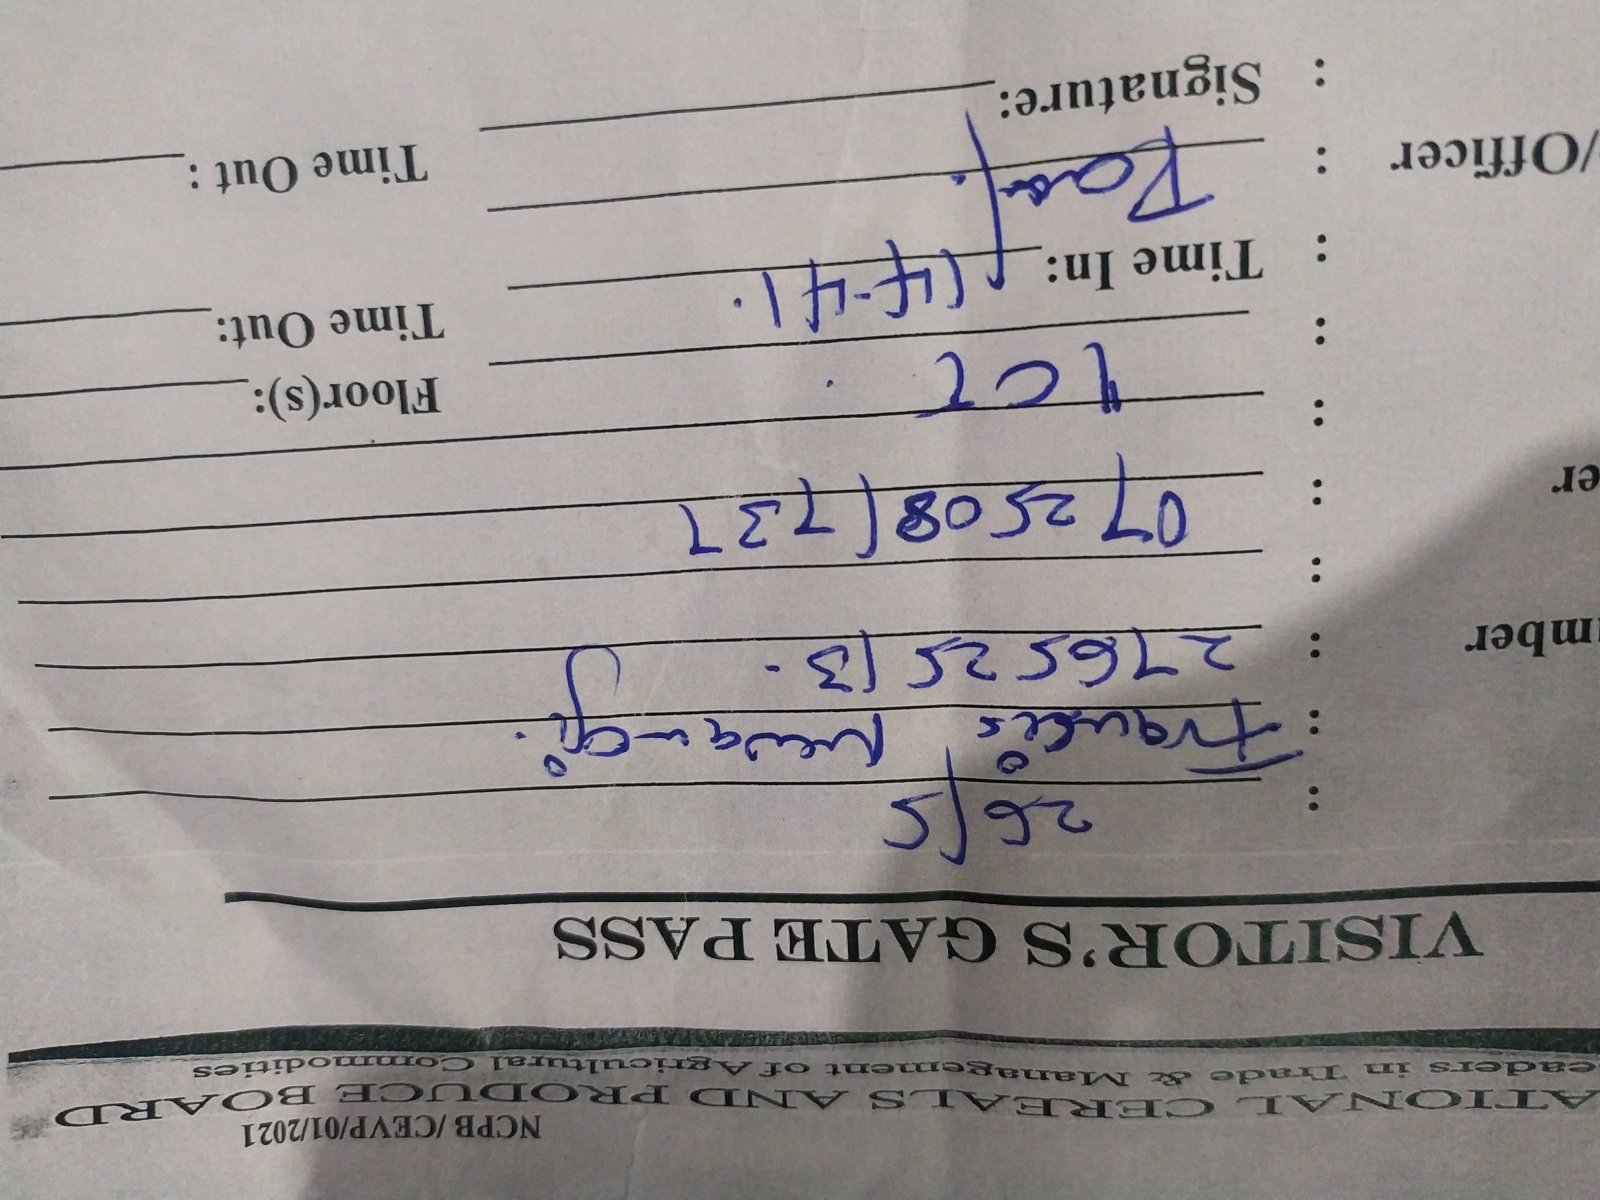 NCPB /CEVP/01/2021
ATIONAL CEREALS AND PRODUCE BOARD
eaders in Trade & Management of Agricultural Commodities
VISITOR'S GATE PASS
: 26/5
: Francis Mwangi.
umber : 27652513.
:
er : 0725081737
: Floor(s):
: Time Out:
: Time In: 14-41.
/Officer : Time Out :
: Signature: